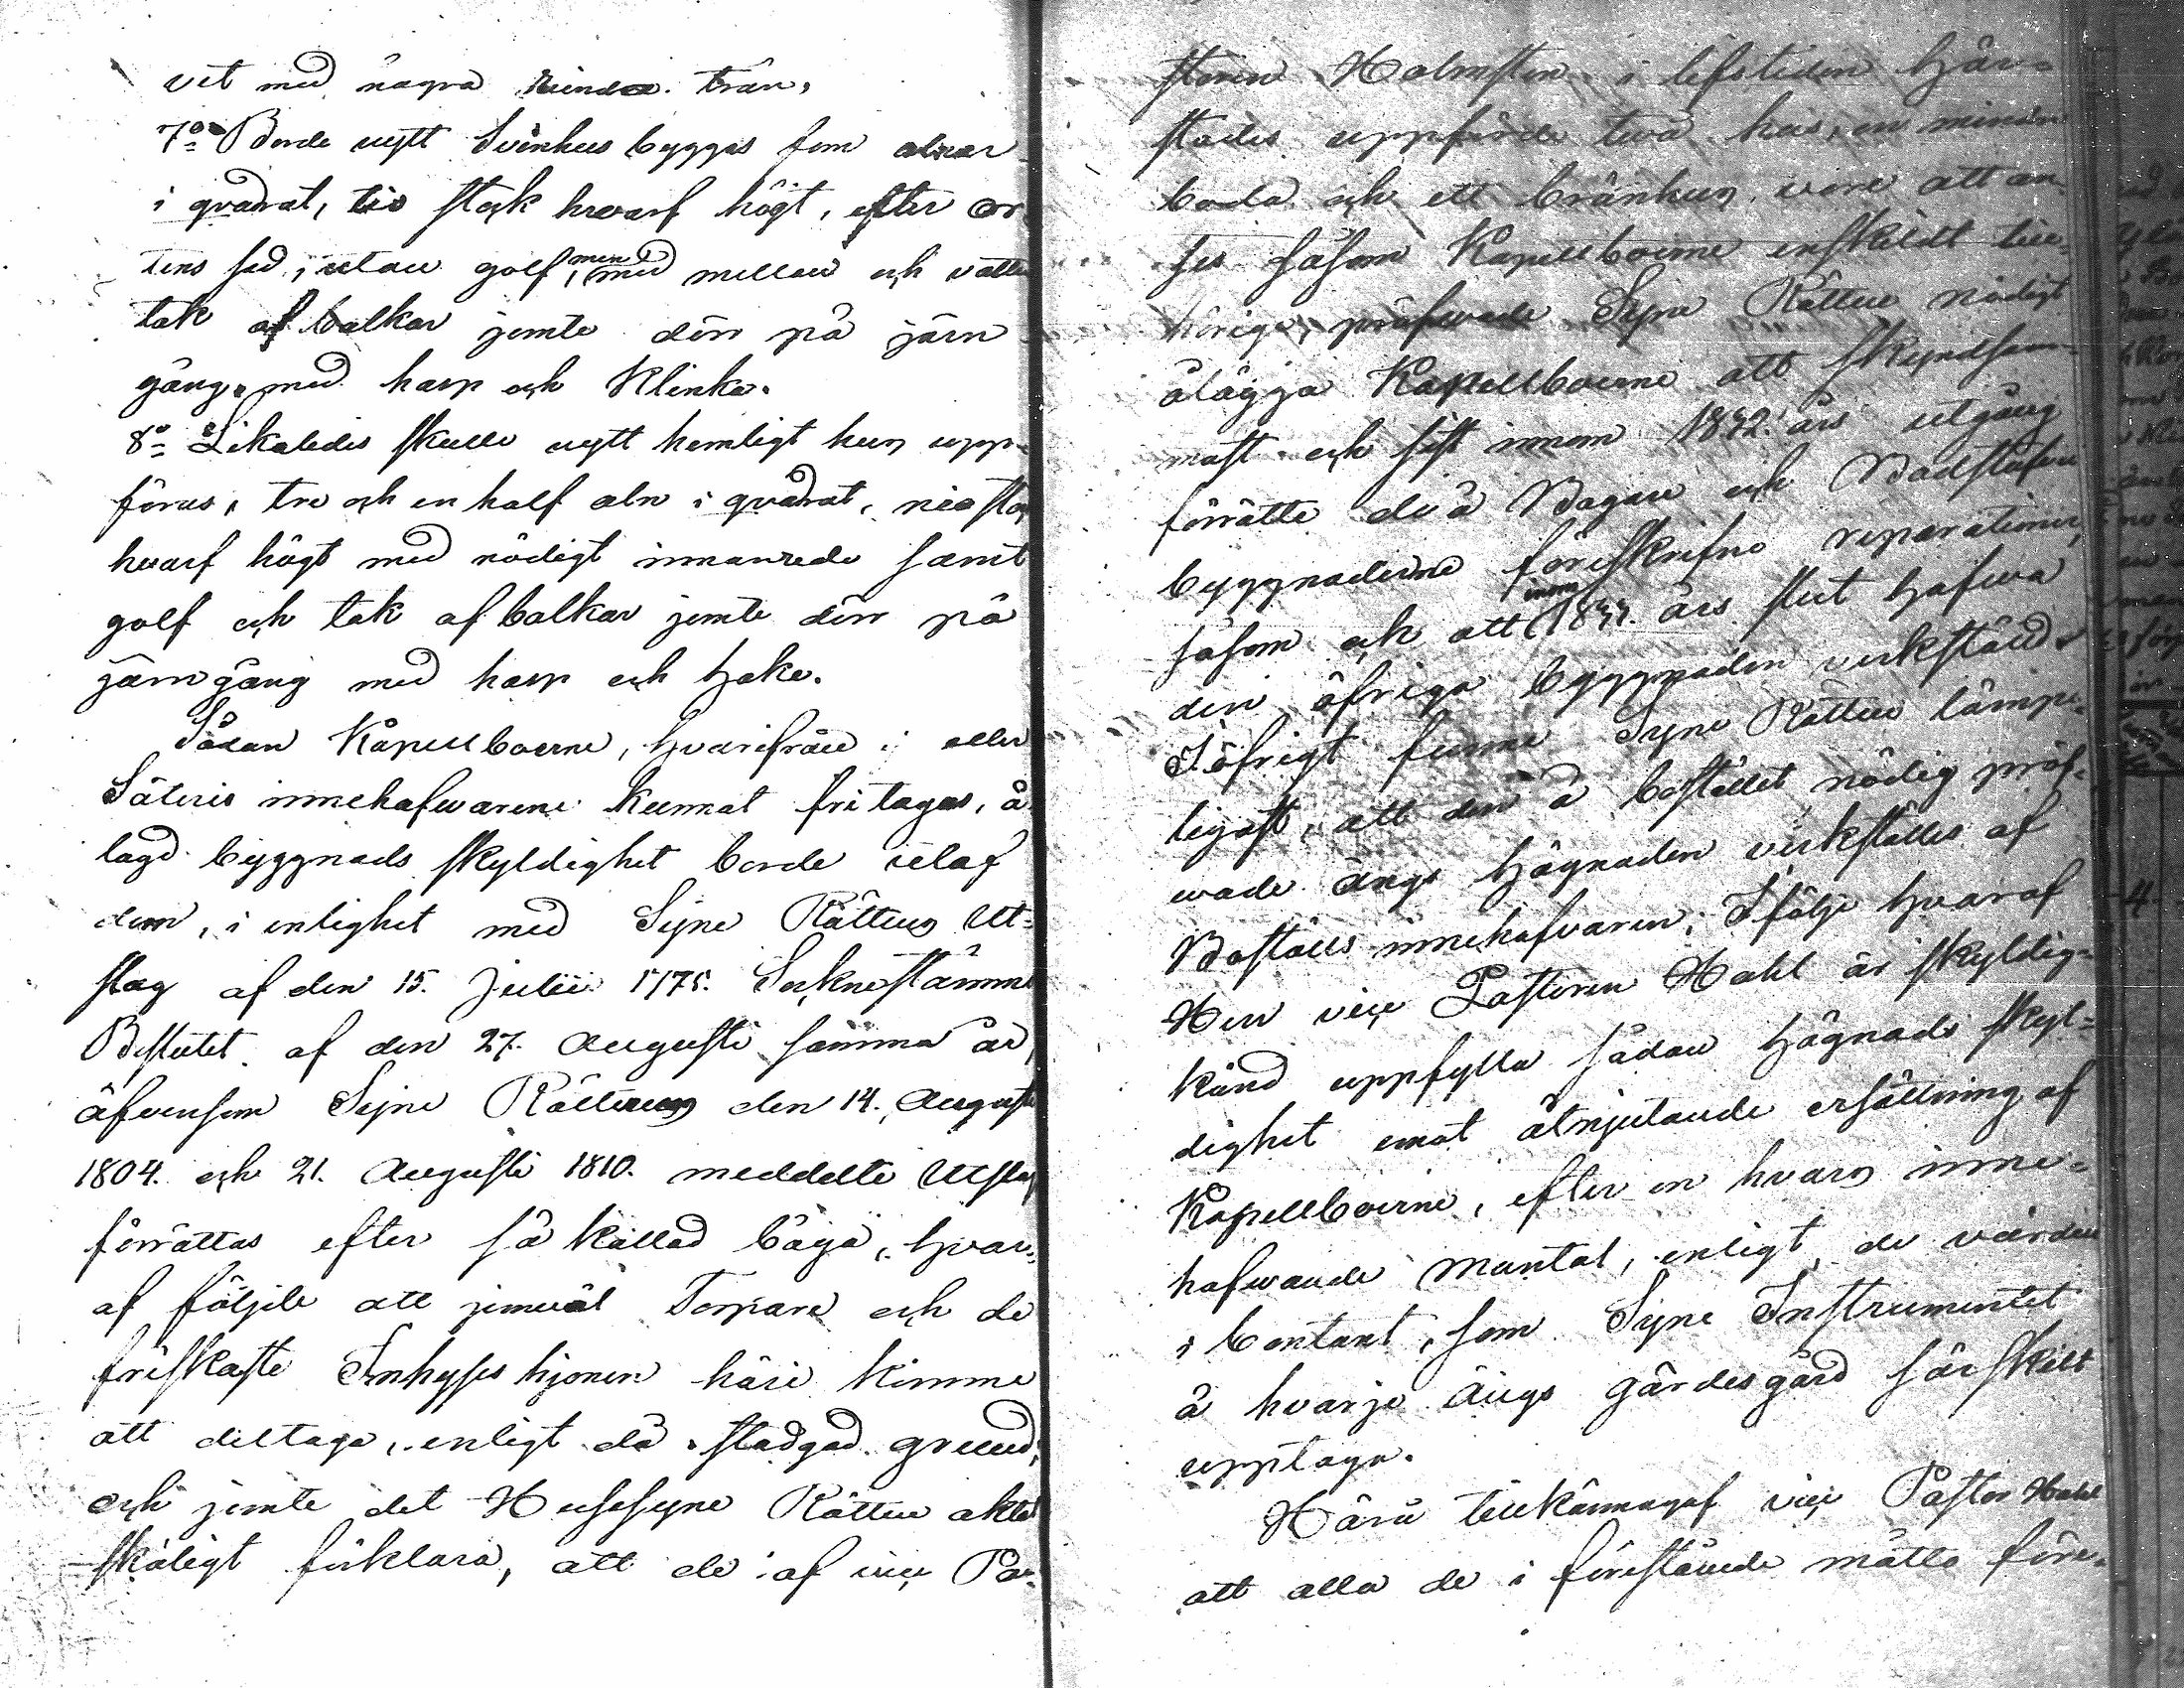 vet med några runda trän,
7:o Borde nytt Svinhus byggas fem alnar
i qvadrat, tio stock hwarf högt, efter or-
tens sed, utan golf, men med mellan och vatten
tak af balkar jemte dörr på järn
gång, med harp och Klinka.
8:o Likaledes skulle nytt hemligt hus upp-
föras, tre och en half aln i qvadrat, nio stock
hvarf högt med nödigt innanrede samt
golf och tak af balkar jemte dörr på
järngång med harp och hake.
Sådan Kapellboerne, hvarifrån ej eller
Säteris innehafwarene kunnat fritagas, å-
lagd byggnads skyldighet borde utaf
dem, i enlighet med Syne Rättens Ut-
slag af den 15. Julii 1775. Sockne stämme
Beslutet af den 27. Augusti samma år,
äfvensom Syne Rättens den 14. Augusti
1804. och 21. Augusti 1810. meddelte Utslag
förrättas efter så kallad båga, hvar-
af följde att jemväl Torpare och de
friskaste Inhyses hjonen häri komme
att deltaga, enligt då stadgad grund,
och jemte det Husesyne Rätten aktade
skäligt förklara, att de af vice Pa-
storen Holmsten i lifstiden här-
städes uppförde twå hus, en mindre
boda och ett bränhus, vore att an-
ses såsom Kapellboerne enskildt till-
hörige, pröfwade Syne Rätten nödigt
ålägga Kapellboerne att skyndsam-
mast och sist innom 1832. års utgång
förrätta de å Bagare och Badstufwu
byggnaderne föreskrifne reparationer,
såsom och att innom 1833. års slut hafwa
den öfriga byggnaden verkstäld.
I öfrigt funne Syne Rätten lämpe-
ligast, att den å bostället nödig pröf-
wade ängs hägnaden verkställes af
Boställs innehafvaren; I följe hvaraf
Herr vice Pastoren Hahl är skyldig
känd uppfylla sådan hägnads skyl-
dighet emot åtnjutande ersättning af
Kapellboerne, efter en hvars inne-
hafwande mantal, enligt de värden
i Contant, som Syne Instrumentet
å hvarje ängs gärdesgård särskilt
upptaga.
Härå tillkännagaf vice Pastor Hahl
att alla de i förestående måtto före-